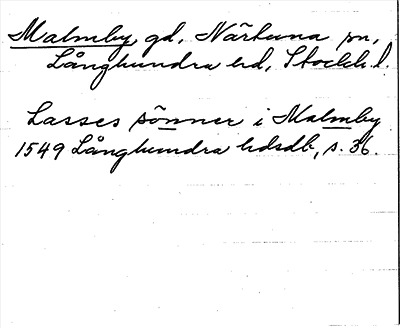 Malmby gd, Närtuna sn,
Långhundra hd, Stockh. l.
Lasses sönner i Malmby
1549 Långhundra hdsdb, s. 36.